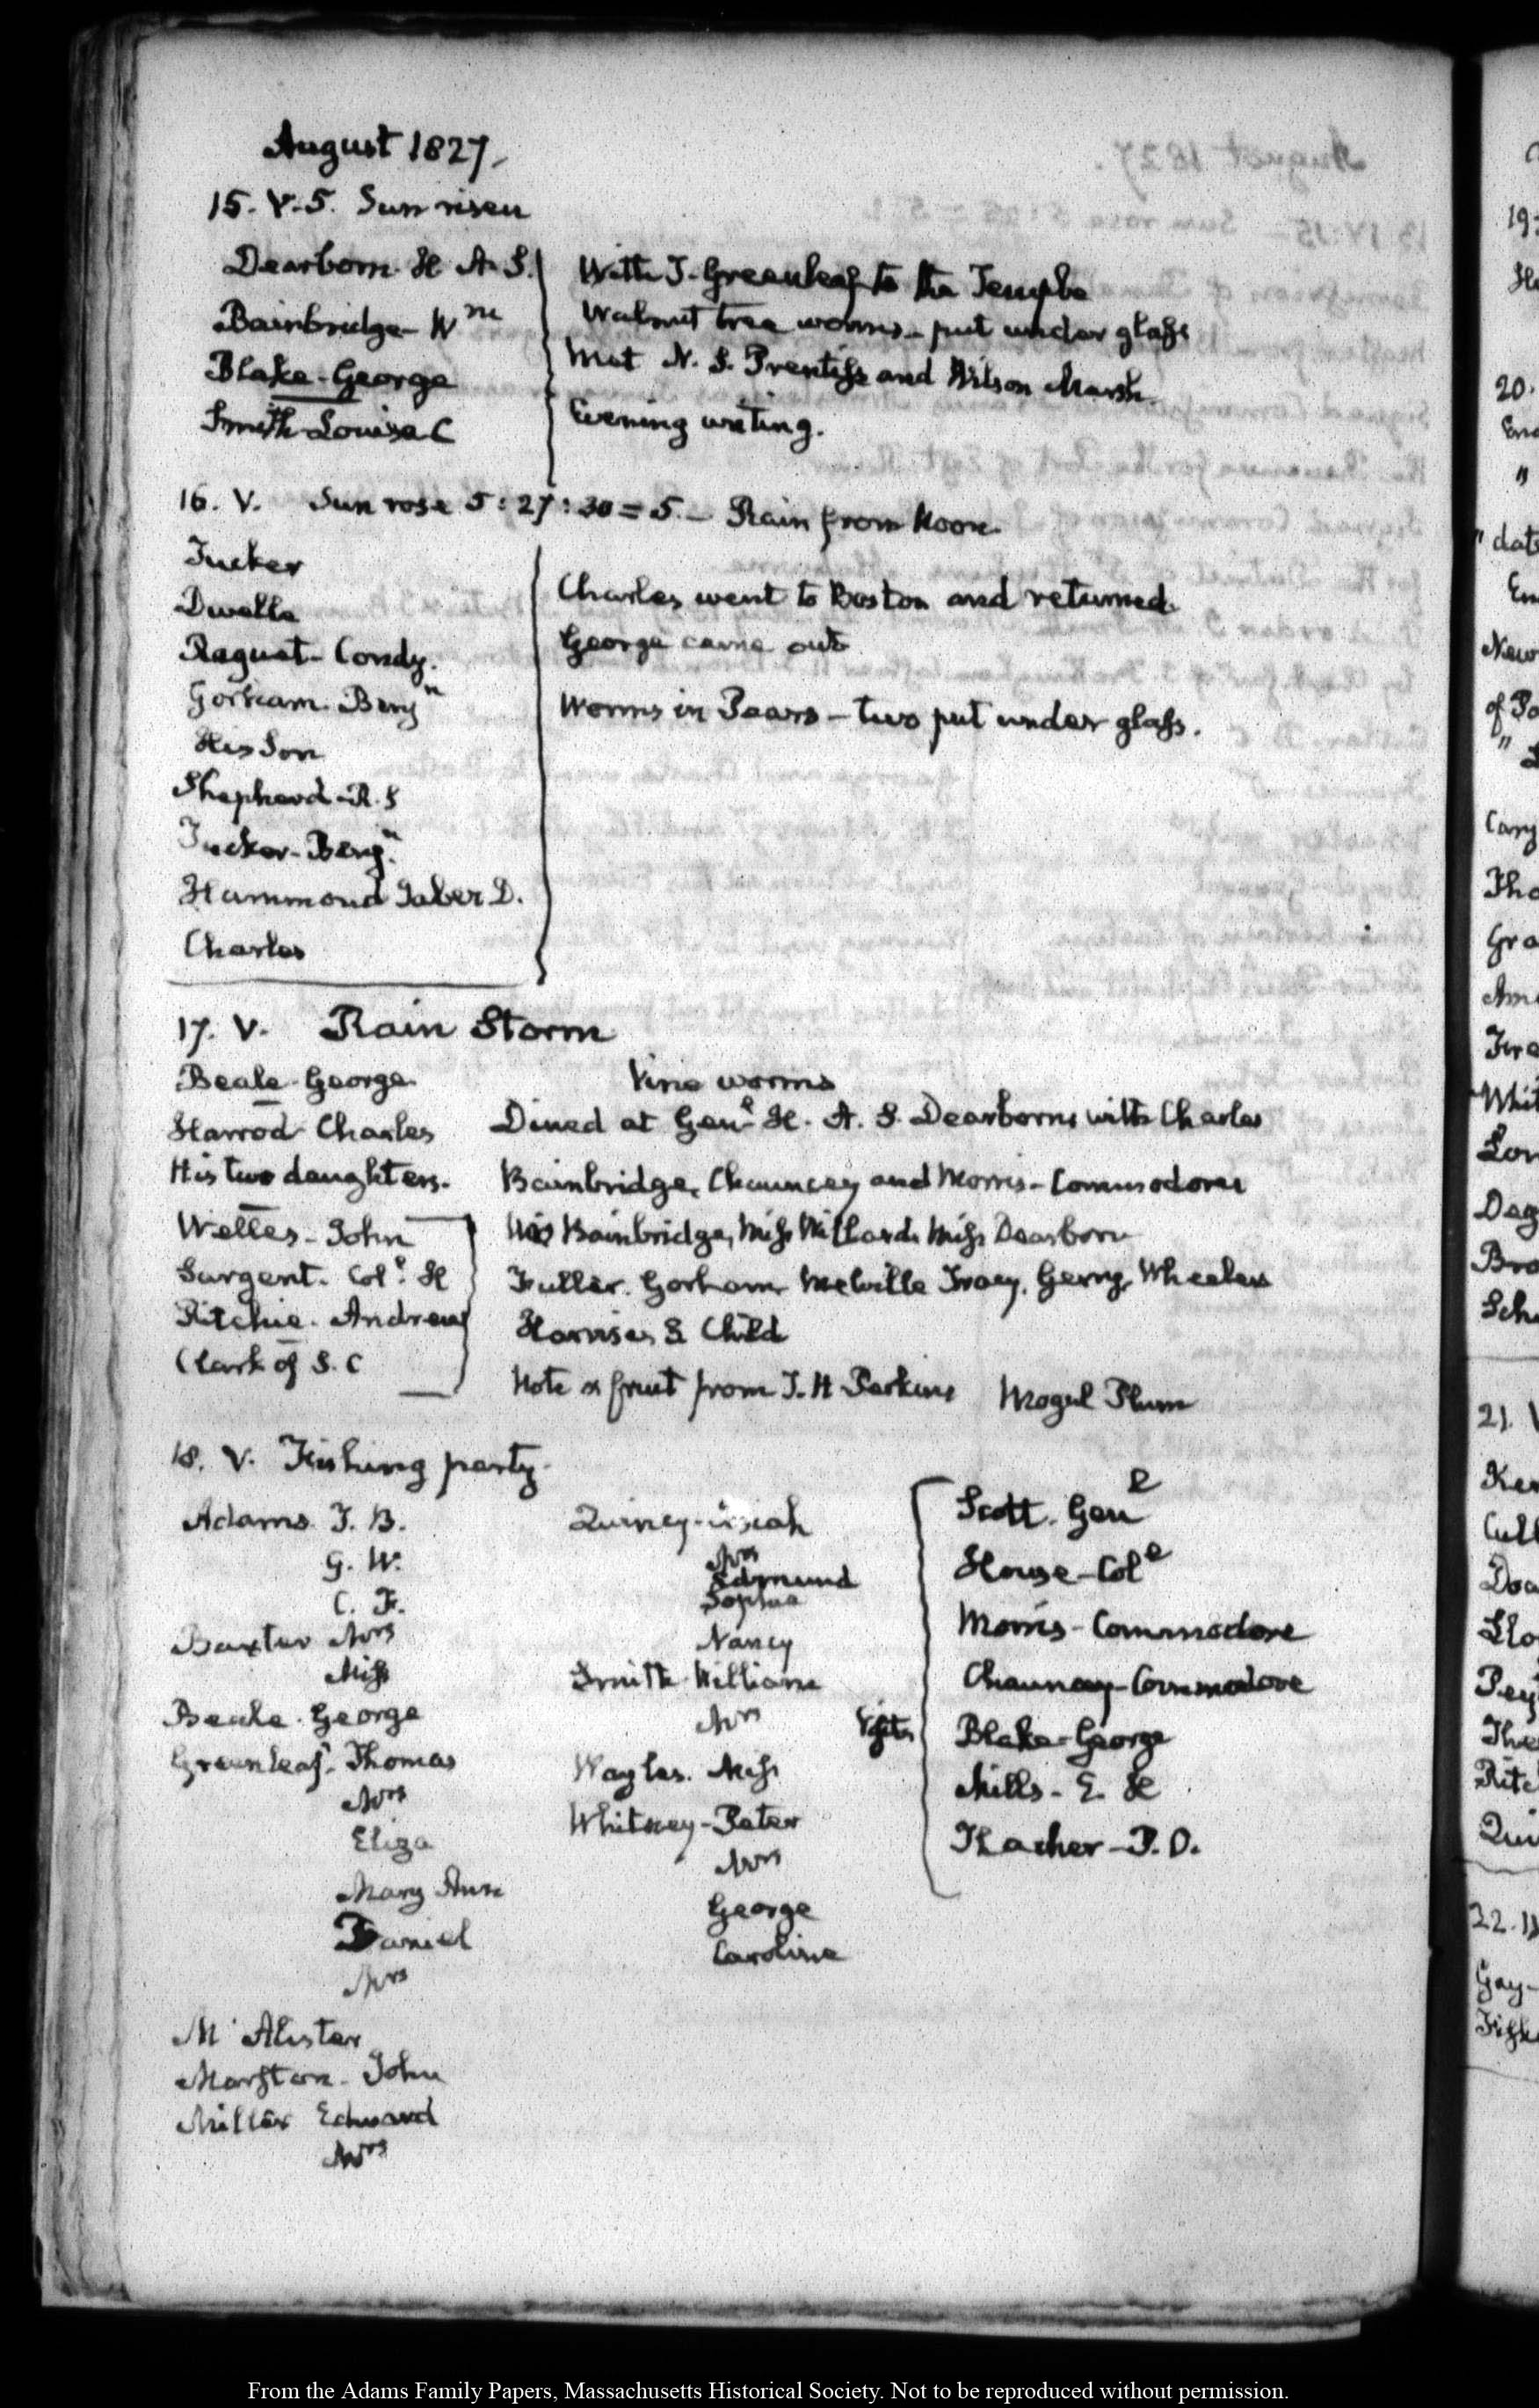 August 1827.
15. V-5. Sun risen
Dearborn H A. S.
Bainbridge- Wm
Blake-George
Smith-Louisa C
With T. Greenleaf to the Temple
Walnut tree worms - put under glass
Met N. S. Prentiss and Wilson Marsh.
Evening writing.
16. V. Sun rose 5:27:30=5.- Rain from Noon.
Tucker
Dwelle
Raguet- Condy.
Gorham. Benjn
His Son
Shepherd-R. S
Tucker-Benjn.
Hammond Jaber D.
Charles
Charles went to Boston and returned.
George came out
Worms in Pears - two put under glass.
17. V. Rain Storm
Beale-George.
Harrod Charles
His two daughters.
Welles-John
Sargent. Coll. H
Ritchie. Andrew
Clark of S. C
Vine worms
Dined at Genl H. A. S. Dearborns with Charles
Bainbridge, Chauncey and Morris-Commodores
Miss Bainbridge, Miss Willard. Miss Dearborn
Fuller. Gorham Melville Tracy. Gerry, Wheeler
Harrises & Child
Note & fruit from T. H Perkins Mogul Plum
18. V. Fishing party.
Adams. T. B.
G. W.
C. F.
Baxter Mrs
Miss
Beale. George
Greenleaf. Thomas
Mrs
Eliza
Mary Ann
Daniel
Mrs
M'Alister
Marston- John
Miller Edward
Mrs
Quincy-Josiah
Mrs
Edmund
Sophia
Nancy
Smith William
Mrs
Wayles. Miss
Whitney-Peter
Mrs
George
Caroline
Scott. Genl
House-Coll
Morris-Commodore
Chauncey-Commodore
Blake-George
Mills-E. H
Thacher-P. O.
From the Adams Family Papers, Massachusetts Historical Society. Not to be reproduced without permission.